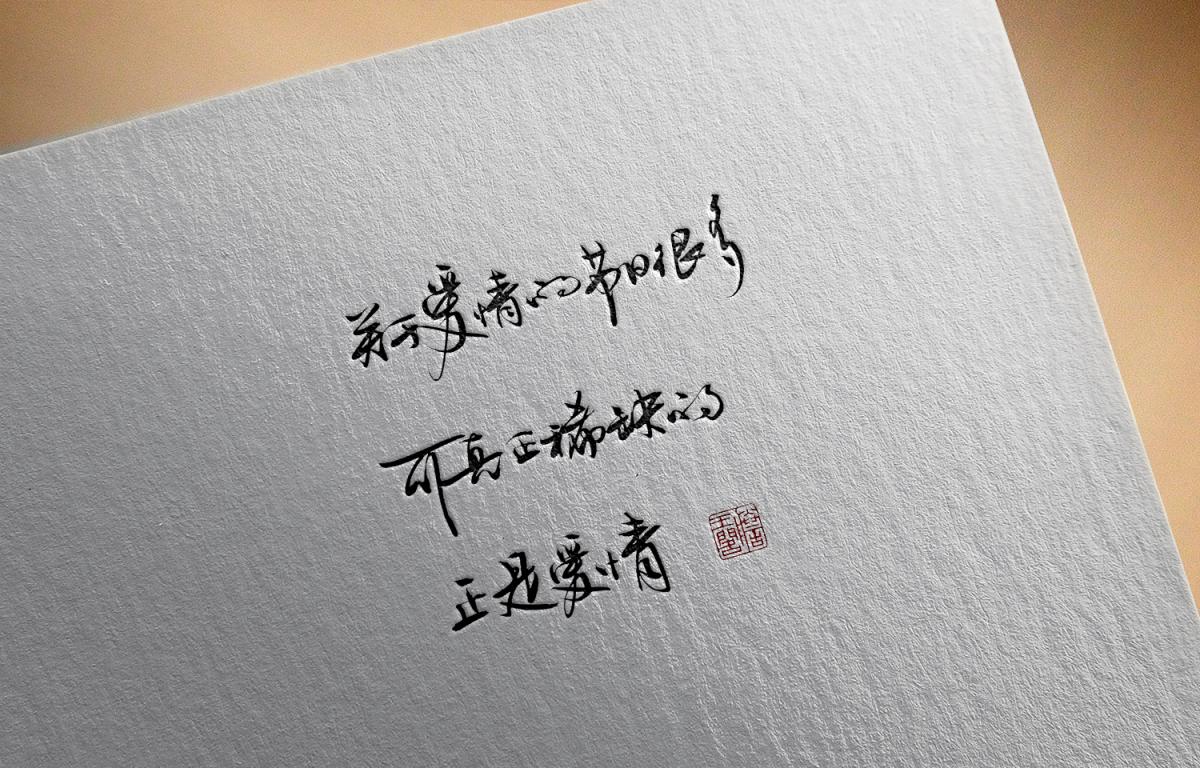 关于爱情的节日很多
可真正稀缺的
正是爱情